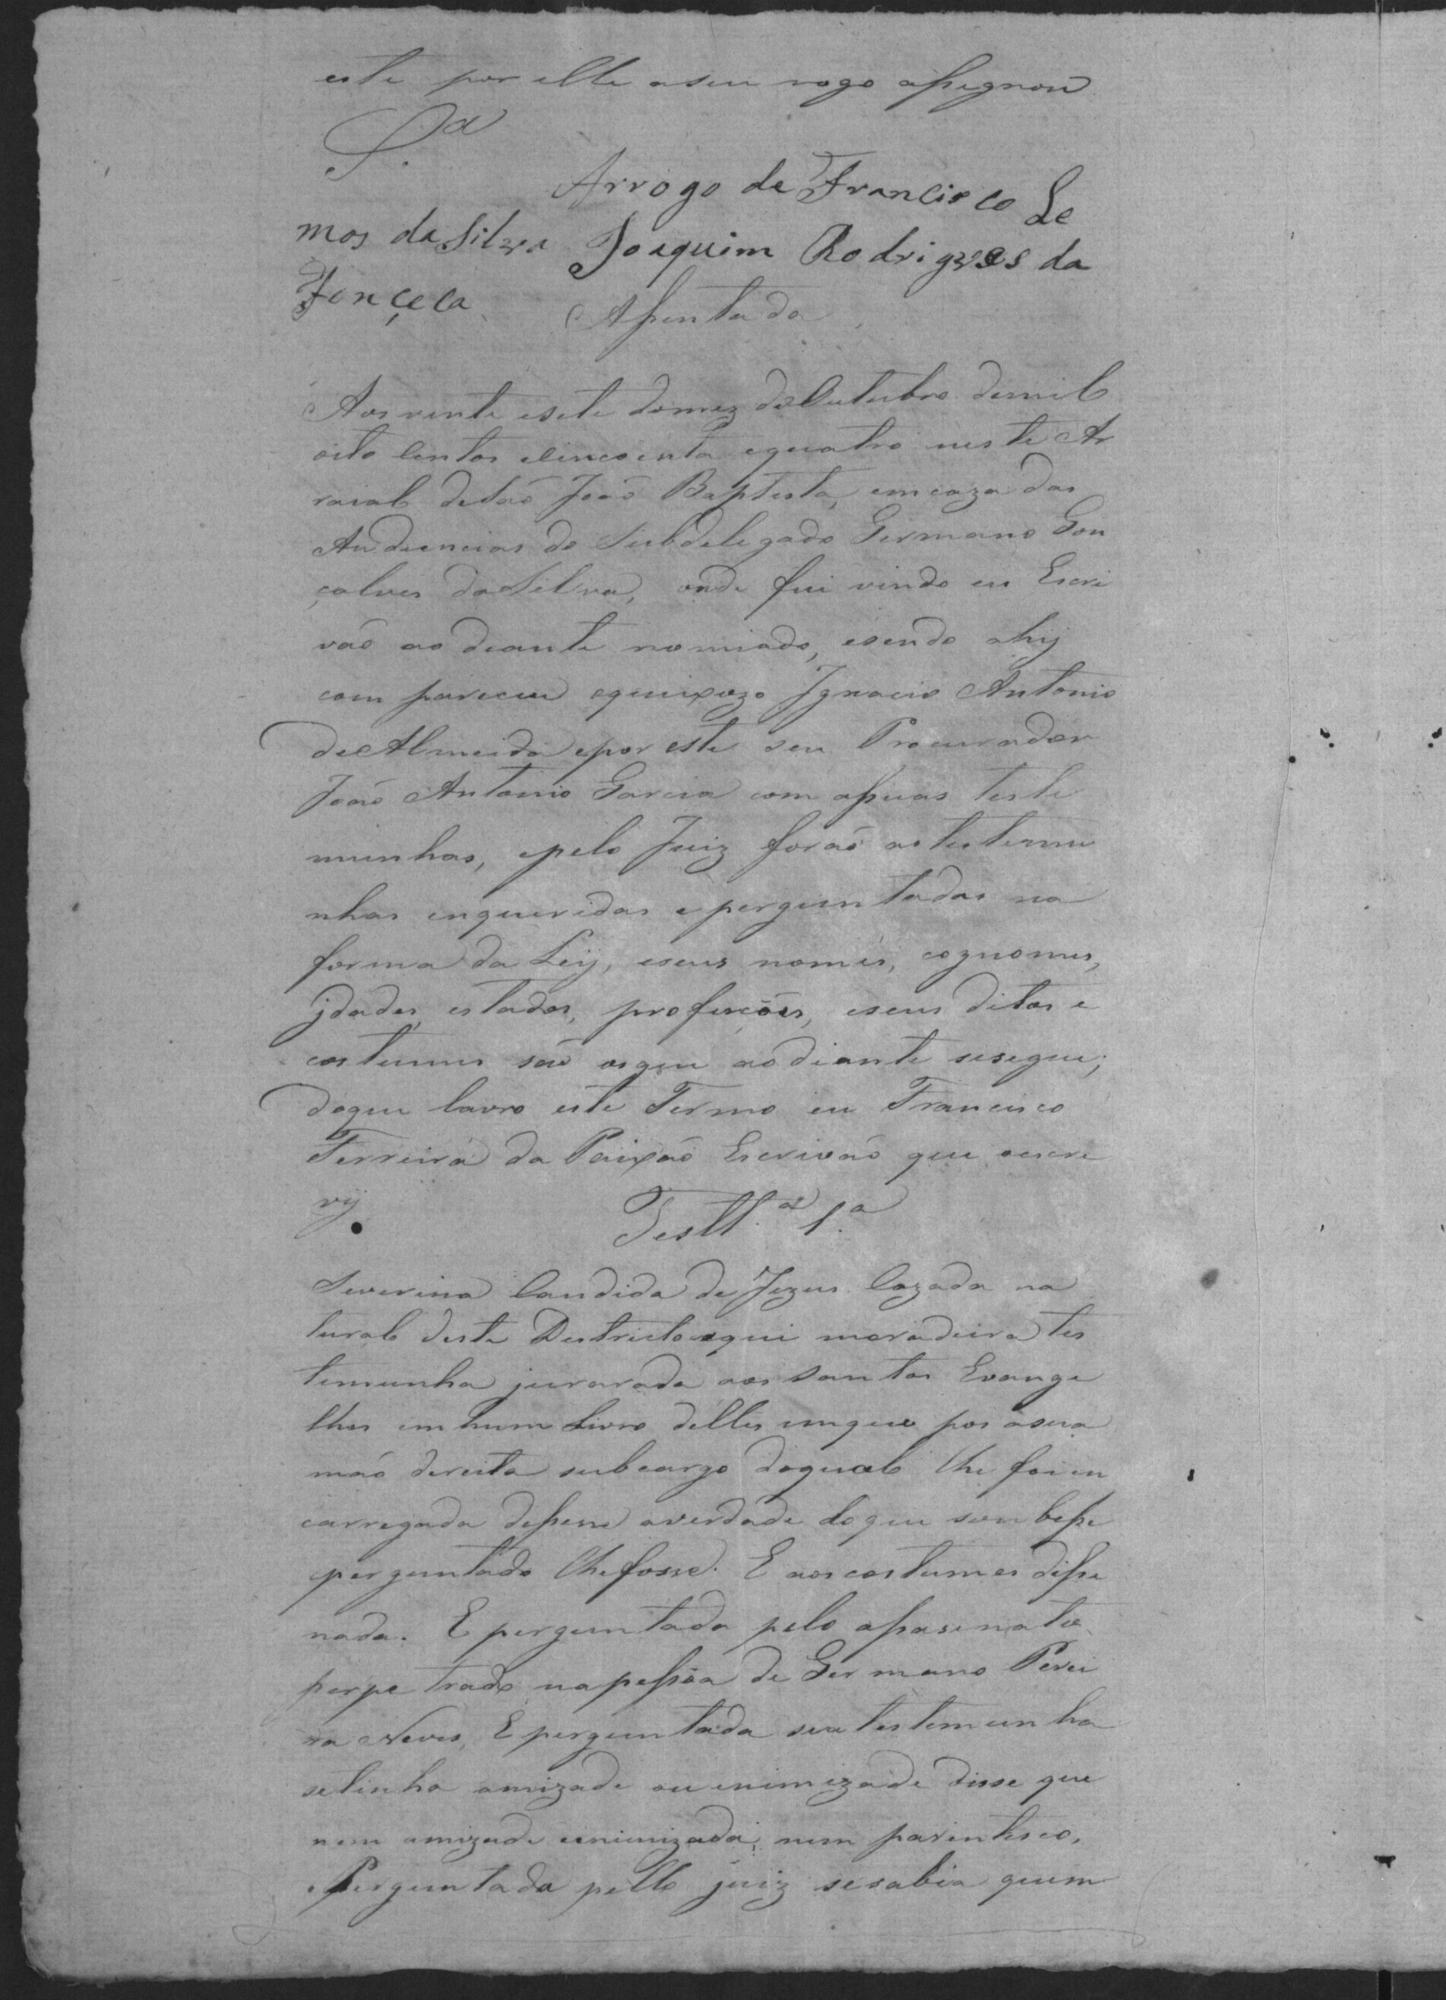 este por elle a seu rogo assignou
S.ª
Arrogo de Francisco Le
mos da Silva Joaquim Rodrigues da
Fonçeca
Assentada
Aos vinte esete domez deOutubro demil
oito Centos eCincoenta equatro neste Ar
raial deSaõ Joaõ Baptista, emcaza das
Audiencias do Subdelegado Germano Gon
çalves daSilva, onde fui vindo eu Escri
vaõ ao deante nomiado, esendo ahij
com pareceu oqueixozo Ignacio Antonio
deAlmeida epor este seu Procurador
Joaõ Antonio Garcia com assuas teste
munhas, epelo Juiz foraõ as testemu
nhas enqueridas eperguntadas na
forma da Ley, eseus nomes, cognomes,
jdades, estados, profiçoẽs, eseus ditos e
costumes saõ osque aodiante sesegue;
doque lavro este Termo eu Francisco
Ferreira da Paixaõ Escrivaõ que escre
vy.
Testt.ª 1.ª
Severina Candida de Jezus Cazada na
tural deste Destricto eaqui moradeira tes
temunha jurarada aos Santos Evange
lhos em hum Livro delles emque pos asua
maõ dereita subcargo doqual lhe foi en
carregada dissese averdade doque soubesse
perguntado lhefosse. E aoscostumes disse
nada. E perguntada pelo assasinato
perpetrado napessôa de Germano Perei
ra Neves, E perguntada seu testemunha
setinha amizade ou enimizade disse que
nem amizade enimizade, nem parentesco,
Perguntada pello juiz sesabia quem